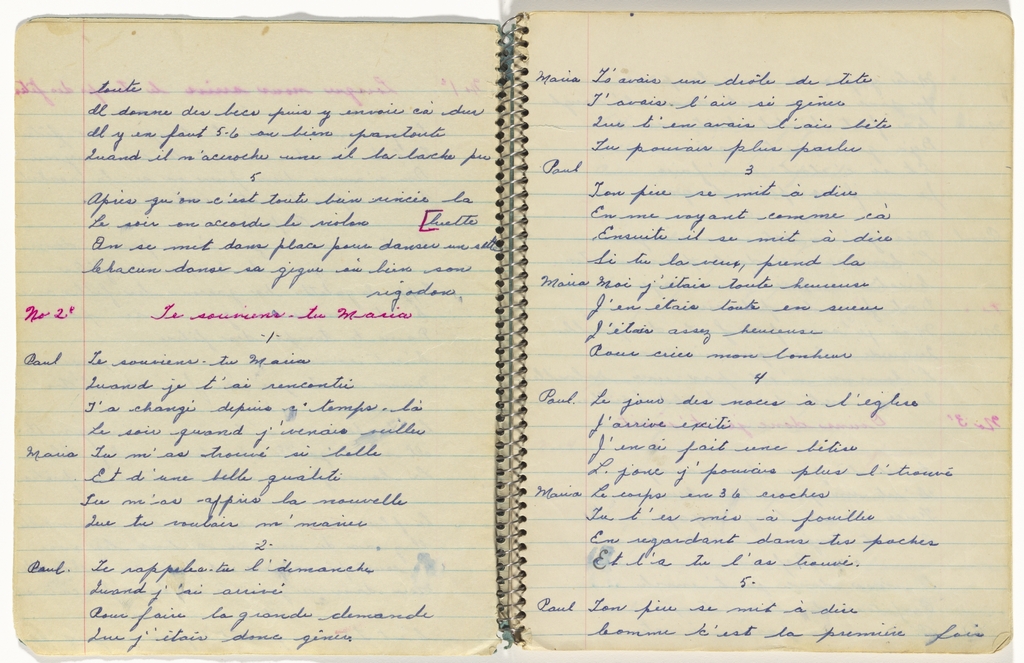 toute
Il donne des becs puis y envoie cà dur
Il y en faut 5-6 ou bien partoute
Quand il n'accroche une il la lache pu
5
Après qu'on c'est toute bien rincée la
Le soir on accorde le violon [luette
On se met dans place pour danser un set
Chacun danse sa gigue où bien son
rigodon.
No 2. Te souviens-tu Maria
-1-
Paul Te souviens-tu Maria
Quand je t'ai rencontré
T'a changé depuis temps-là
Le soir quand j'venais veiller
Maria Tu m'as trouvé si belle
Et d'une belle qualité
Tu m'as appris la nouvelle
Que tu voulais m'marier
2-
Paul. Te rappeles-tu l'dimanche
Quand j'ai arrivé
Pour faire la grande demande
Que j'étais donc gêner
Maria T'avais un drôle de tête
T'avais l'air si gêner
Que t'en avais l'air bête
Tu pouvais plus parler
Paul 3
Ton père se mit à dire
En me voyant comme cà
Ensuite il se mit à dire
Si tu la veux, prend la
Maria Moi j'étais toute heureuse
J'en étais toute en sueur
J'étais assez heureuse
Pour crier mon bonheur
4
Paul. Le jour des noces à l'église
J'arrive éxité
J'en ai fait une bêtise
L. jonc j'pouvais plus l'trouvé
Maria Le corps en 36 croches
Tu t'es mis à fouiller
En regardant dans tes poches
Et l'a tu l'as trouvé.
5-
Paul Ton père se mit à dire
Comme c'est la première fois